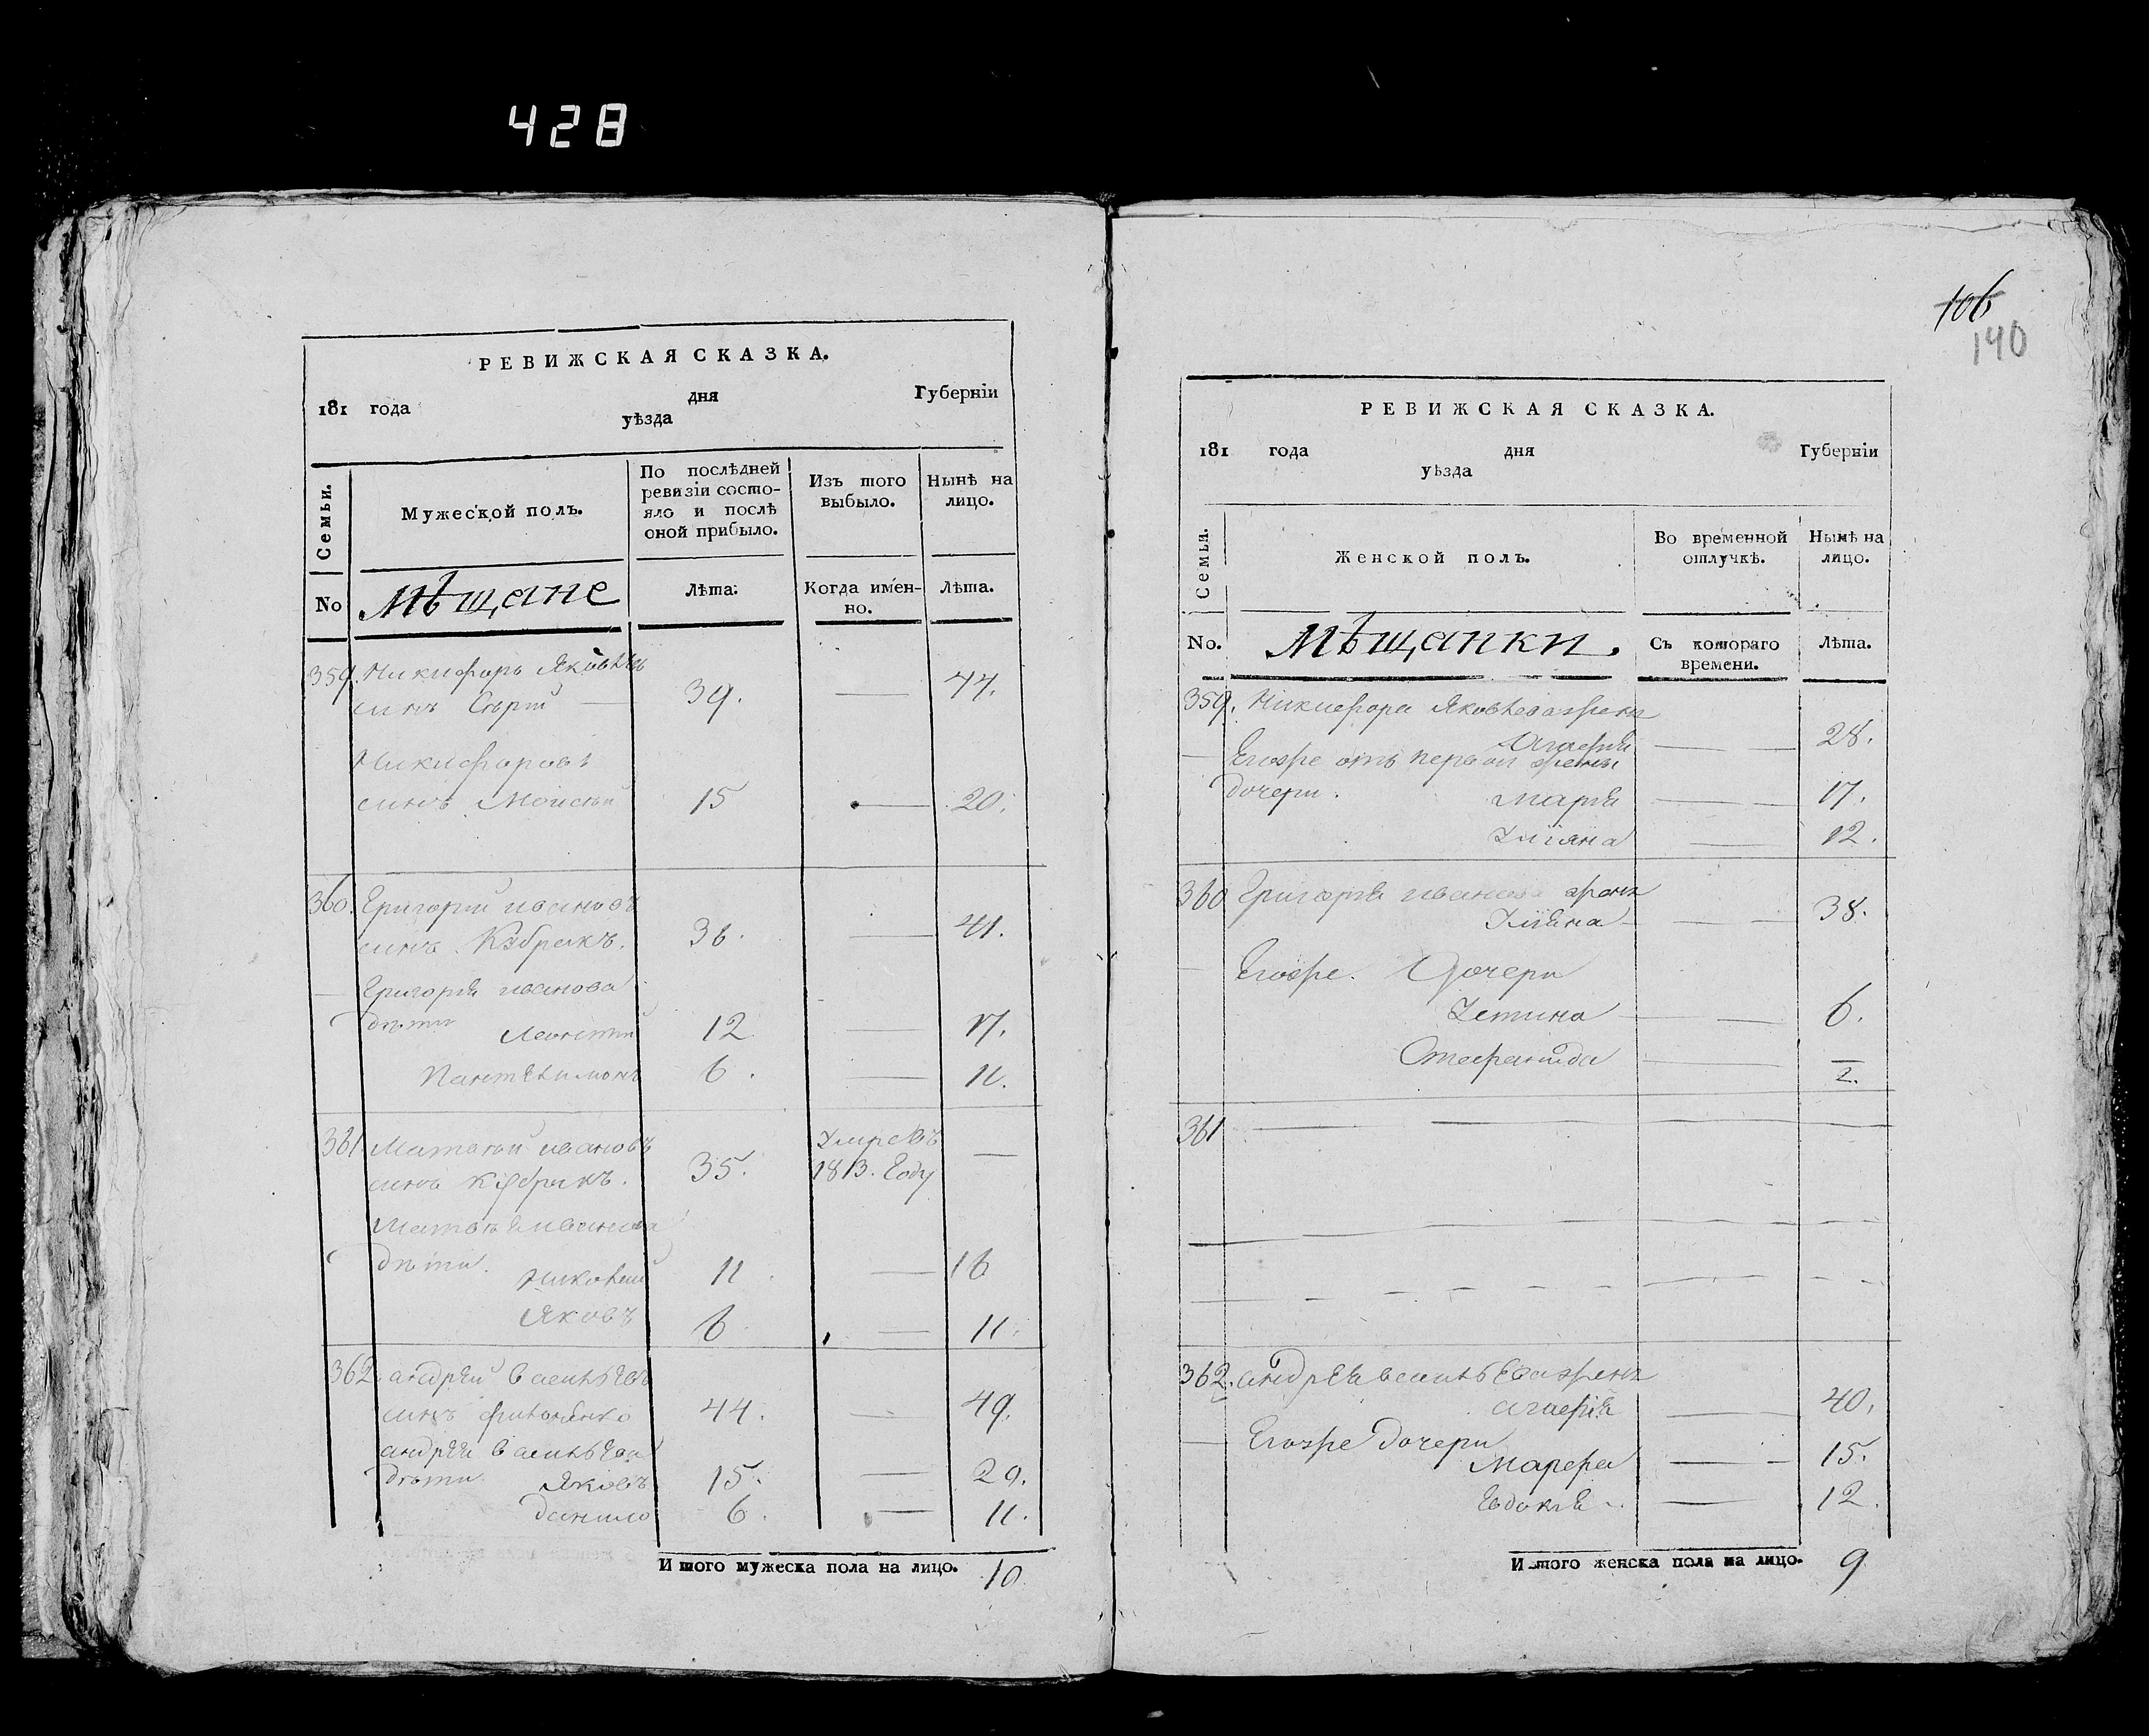 428
РЕВИЖСКАЯ СКАЗКА.
181 года дня Губерніи
уѣзда
Семьи.
Мужеской полъ.
По послѣдней
ревизіи состо-
яло и послѣ
оной прибыло.
Изъ того
выбыло.
Нынѣ на
лицо.
No
мѣщане
Лѣта.
Когда имен-
но.
Лѣта.
359. Никифоръ Яковлевъ
синъ Сѣрий 39. — 44.
Никифоровъ
синъ Моисѣй 15 — 20.
360. Григорий ивановъ
синъ 36. — 41.
Григорія иванова
дѣти Леонтий 12 — 17.
Пантелимонъ 6. — 11.
361 Матвѣй ивановъ
синъ 35. Умре въ 1813. Году —
Матвѣя иванова
дѣти. Николай 11. — 16
Яковъ 6 — 11.
362. андрей василѣвъ
синъ 44. — 49.
андрея василѣва
дѣти Яковъ 15. — 20.
данило 6. — 11.
И того мужеска пола на лицо. 10
106
140
РЕВИЖСКАЯ СКАЗКА.
181 года дня Губерніи
уѣзда
Семьи.
Женской полъ.
Во временной
отлучкѣ.
Нынѣ на
лицо.
No.
мѣщанки.
Съ котораго
времени.
Лѣта.
359. Никифора Яковлева жена
Агафия — 28.
— Егоже отъ первой жены
дочери. Мария — 17.
Улияна — 12.
360 Григория иванова жена
Улияна — 38.
— Егоже. Дочери
Устина — 6.
Стефанида — 1/2.
361 —
362. андрея василѣва жена
агафія — 40.
— Егоже дочери
Марфа — 15.
Евдокія — 12.
И того женска пола на лицо. 9